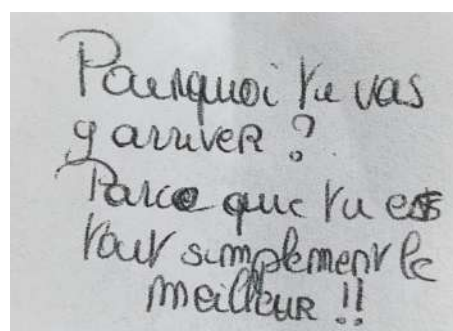 Pourquoi tu vas
y arriver ?
Parce que tu es
tout simplement le
meilleur !!